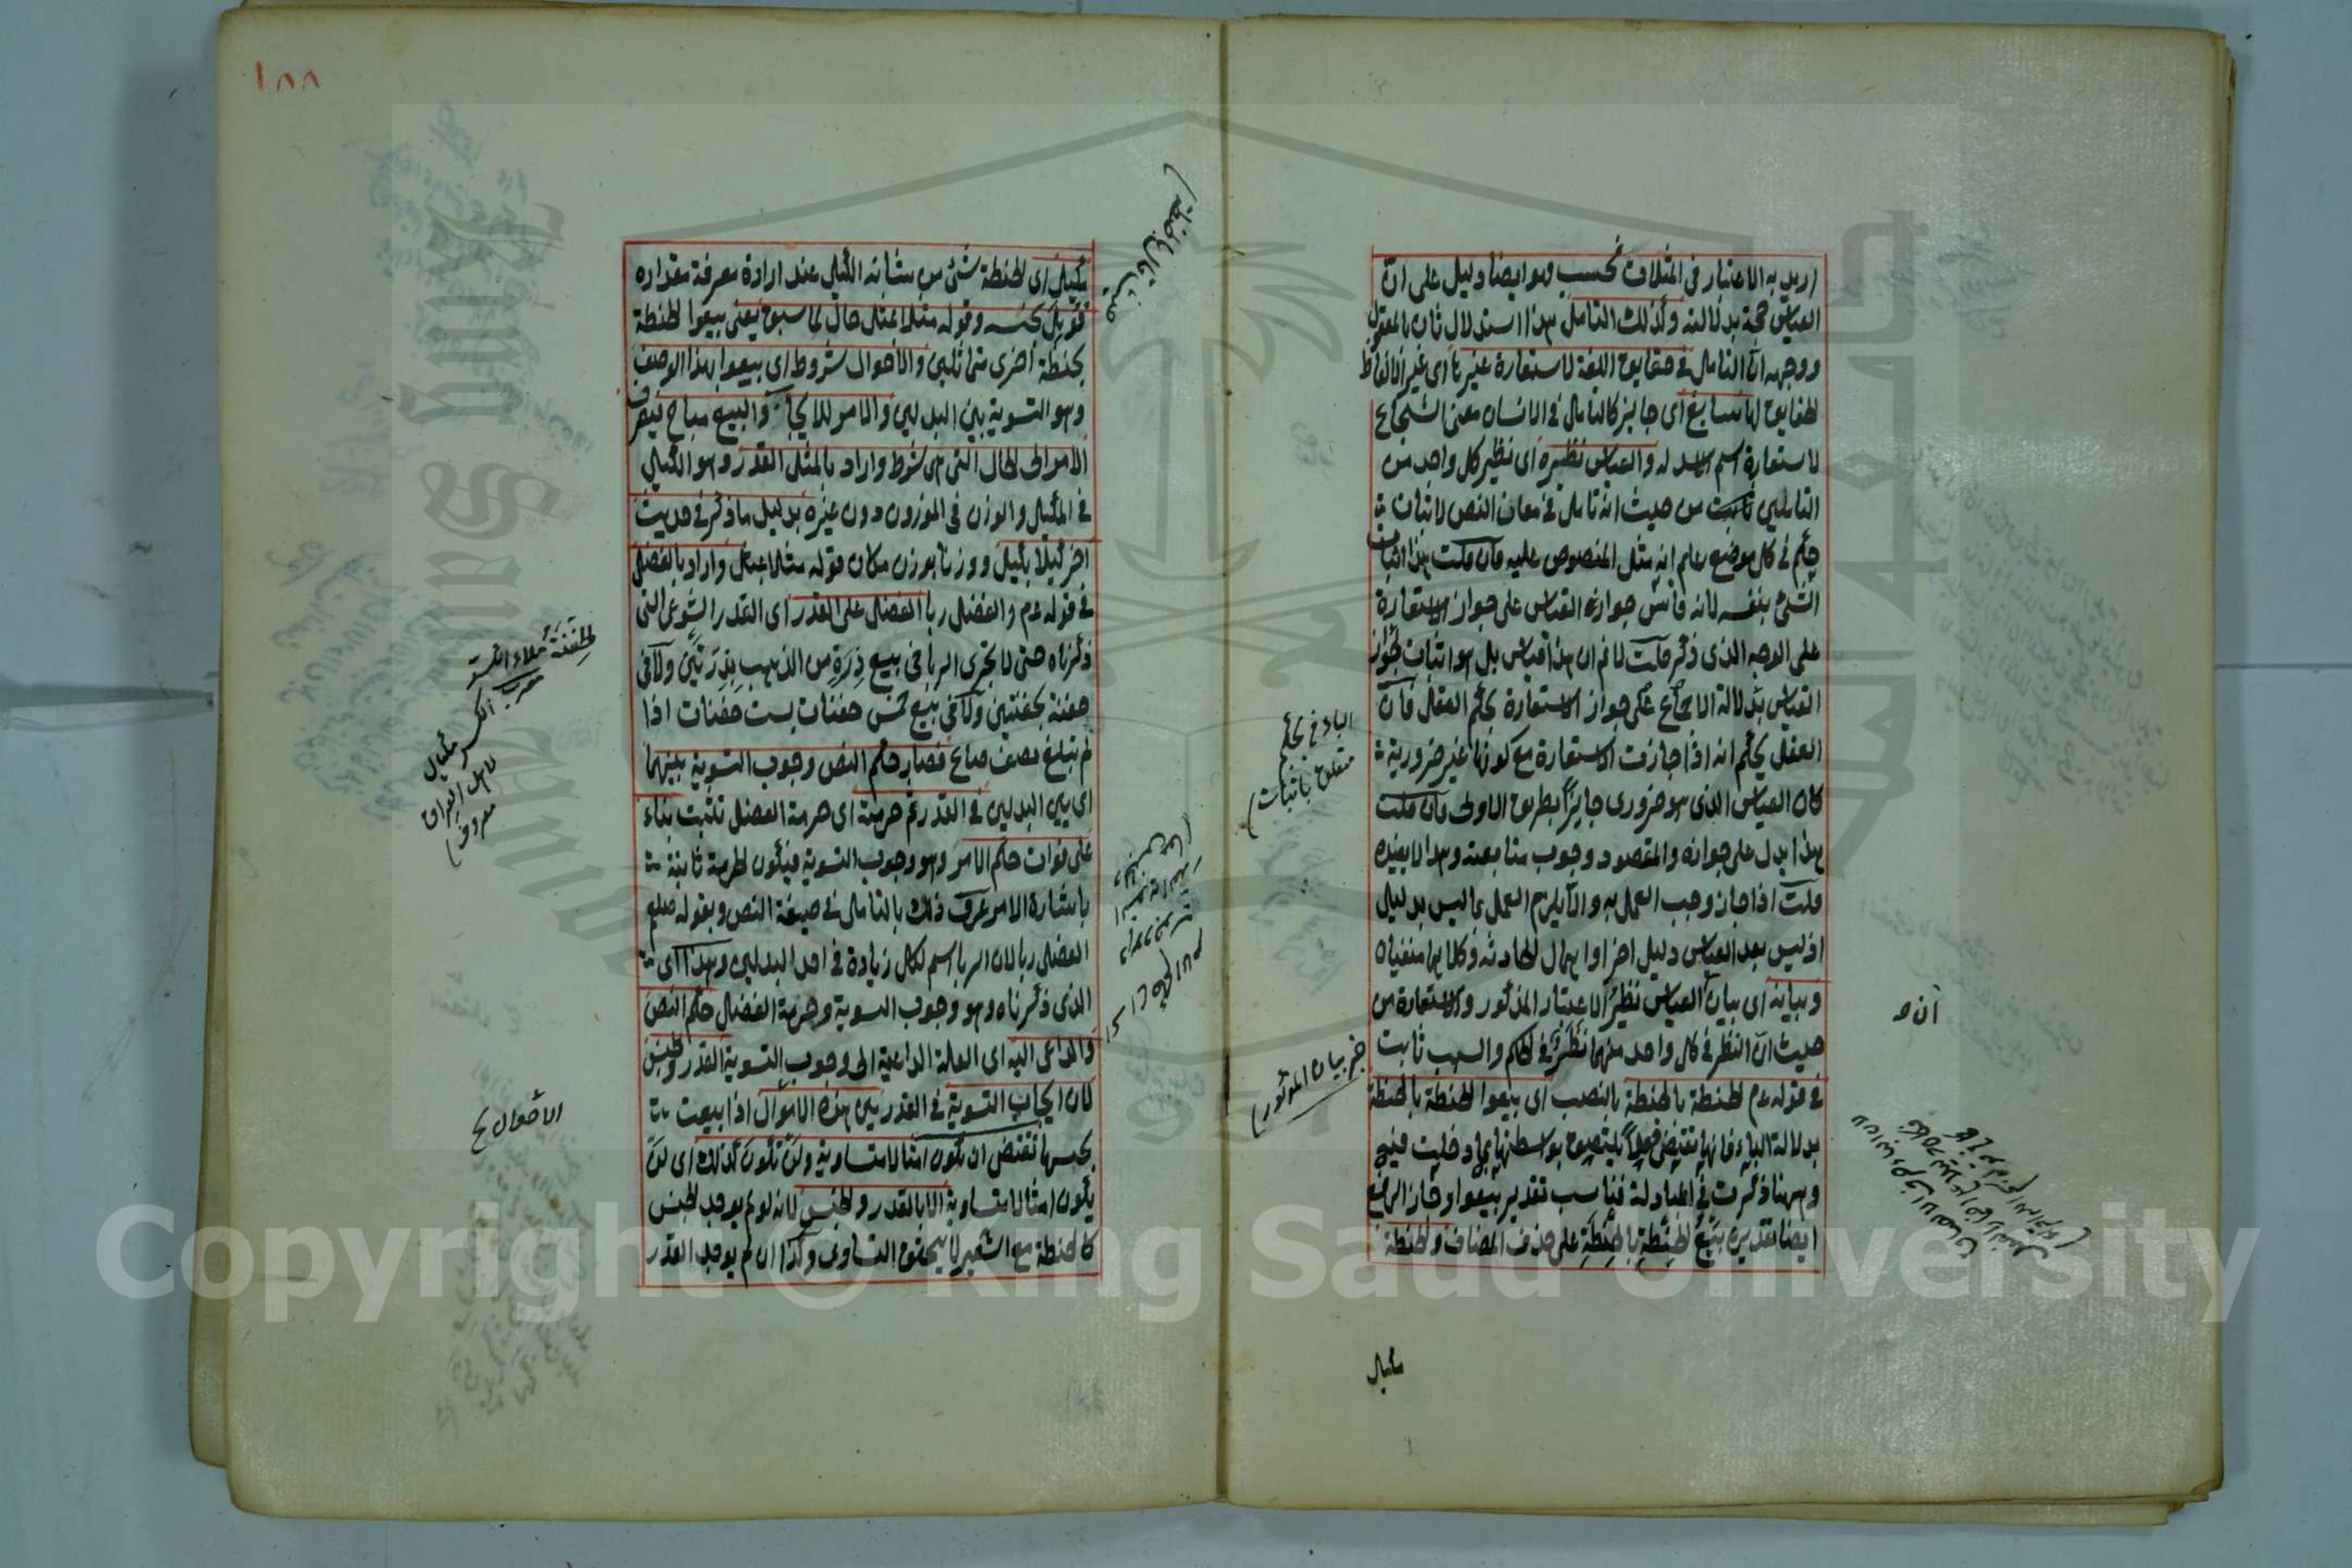 اريد به الاعتبار في المثلات فحسب وهو ايضا دليل على ان
القياس حجة بدلالته وكذلك التامل هذا استدلال ثان بالمعقول
ووجهه ان التامل في حقايق اللغة لاستعارة غيرها اى غير الالفاظ
الحقايق لها سايغ اى جايز كالتامل في الانسان معنى الشجاع
لاستعارة اسم الاسد له والقياس نظيره اى نظير كل واحد من
التاملين ثابت من حيث انه تامل في معاني النص لاثبات
حكم في كل موضع علم انه مثل المنصوص عليه فان قلت هذا اثبات
الشئ بنفسه لانه قاس جواز القياس على جواز الاستعارة
على الوجه الذى ذكر قلت لانم ان هذا قياس بل هو اثبات لجواز
القياس بدلالة الاجماع على جواز الاستعارة بحكم العقل فان
العقل يحكم انه اذا جازت الاستعارة مع كونها غير ضرورية
كان القياس الذى هو ضرورى جايزا بطريق الاولى فان قلت
هذا يدل على جوازه والمقصود وجوب متابعته وهذا لا يفيده
قلت اذا جاز وجب العمل به والا يلزم العمل بما ليس بدليل
اذ ليس بعد القياس دليل اخر او اهمال الحادثة وكلاهما منفيان
وبيانه اى بيان القياس نظير الاعتبار المذكور والاستعارة من
حيث ان النظر في كل واحد منهما نظر في الحكم والسبب ثابت
في قوله عم الحنطة بالحنطة بالنصب اى بيعوا الحنطة بالحنطة
بدلالة الباء فانها تقتضى فعلا يلتصق بواسطتها بما دخلت فيه
وههنا ذكرت في المبادلة فناسب تقدير بيعوا وجاز الرفع
ايضا تقديره بيع الحنطة بالحنطة على حذف المضاف والحنطة
مكيال
الباء في بحكم
متعلق باثبات
خبر بيان المؤثر
ان صـ
مكيل اى الحنطة شئ من شانه الكيل عند ارادة معرفة مقداره
قوبل بجنسه وقوله مثلا بمثل حال لما سبق يعنى بيعوا الحنطة
بحنطة اخرى متماثلين والاحوال شروط اى بيعوا بهذا الوصف
وهو التسوية بين البدلين والامر للايجاب والبيع مباح فيصرف
الامر الى الحال التى هى شرط واراد بالمثل القدر وهو الكيل
في المكيل والوزن في الموزون دون غيره بدليل ما ذكر في حديث
اخر كيلا بكيل ووزنا بوزن مكان قوله مثلا بمثل واراد بالفضل
في قوله عم والفضل ربا الفضل على القدر اى القدر الشرعى التى
ذكرناه حتى لا يجرى الربا في بيع ذرة من الذهب بذرتين ولا في
حفنة بحفنتين ولا في بيع خمس حفنات بست حفنات اذا
لم تبلغ نصف صاع فصار حكم النص وجوب التسوية بينهما
اى بين البدلين في القدر ثم حرمته اى حرمة الفضل تثبت بناء
على فوات حكم الامر وهو وجوب التسوية فيكون الحرمة ثابتة
باشارة الامر عرف ذلك بالتامل في صيغة النص وبقوله صلعم
الفضل ربا لان الربا اسم لكل زيادة في احد البدلين وهذا اى
الذى ذكرناه وهو وجوب التسوية وحرمة الفضل حكم النص
والداعى اليه اى العلة الداعية الى وجوب التسوية القدر والجنس
لان ايجاب التسوية في القدر بين هذه الاموال اذا بيعت
بجنسها تقتضى ان تكون امثالا متساوية ولن تكون كذلك اى لن
يكون امثالا متساوية الا بالقدر والجنس لانه لو لم يوجد الجنس
كالحنطة مع الشعير لا يتحقق التساوى وكذا ان لم يوجد القدر
الحفنة ملاء الكف
مكيال
لاهل العراق
معروف
الاحوال ع
١٨٨
Copyright © King Saud University
King Saud University
1957